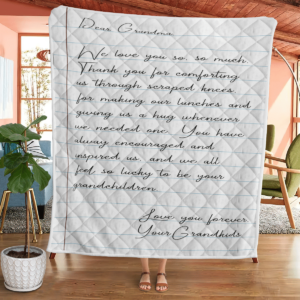 Dear Grandma,
We love you so, so much.
Thank you for comforting
us through scraped knees
for making our lunches and
giving us a hug whenever
we needed one. You have
alway encouraged and
inspired us and we all
feel so lucky to be your
grandchildren.
Love you forever
Your Grandkids